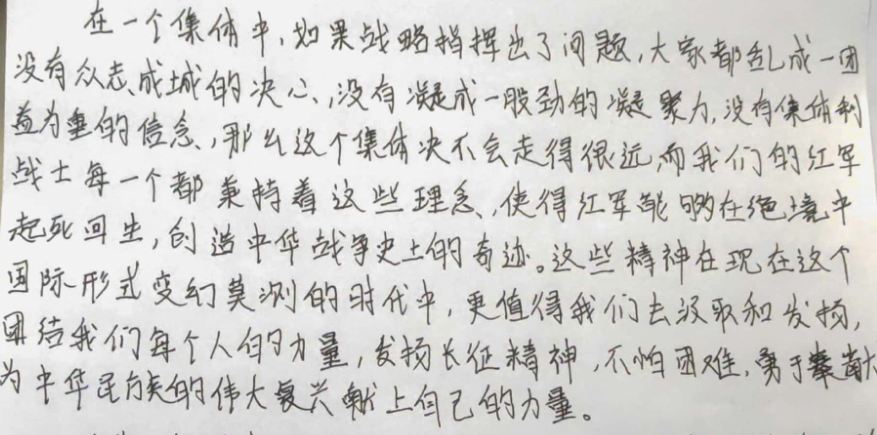 在一个集体中，如果战略指挥出了问题，大家都乱成一团
没有众志成城的决心，没有凝成一股劲的凝聚力，没有集体利
益为重的信念，那么这个集体决不会走得很远，而我们的红军
战士每一个都秉持着这些理念，使得红军能够在绝境中
起死回生，创造中华战争史上的奇迹。这些精神在现在这个
国际形式变幻莫测的时代中，更值得我们去汲取和发扬，
团结我们每个人的力量，发扬长征精神，不怕困难，勇于奉献
为中华民族的伟大复兴献上自己的力量。